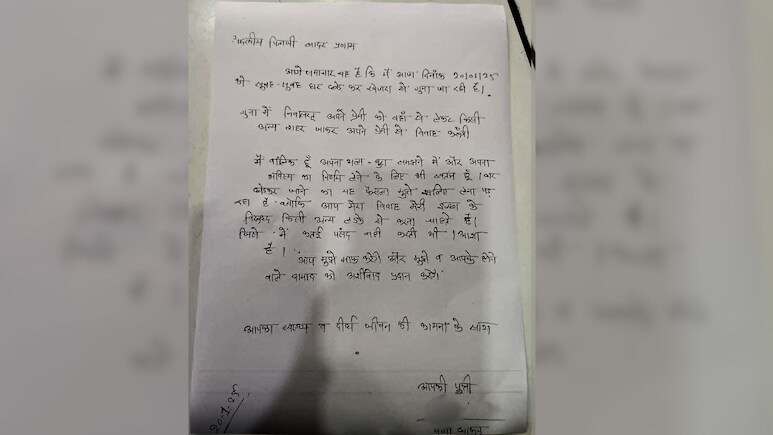 आदरणीय पिताजी सादर प्रणाम
आगे समाचार यह है कि मैं आज दिनांक 20/01/25
को सुबह-सुबह घर छोड़ कर से जा रही हूँ।
में निवासरत अपने प्रेमी को वहाँ से लेकर किसी
अन्य शहर जाकर अपने प्रेमी से विवाह करूँगी
मैं बालिक हूँ अपना भला-बुरा समझने में और अपना
भविष्य का निर्णय लेने के लिए भी स्वतंत्र हूँ। घर
छोडकर जाने का यह फैसला मुझे इसलिए लेना पड़
रहा है क्योंकि आप मेरा विवाह मेरी इच्छा के
विरूद्ध किसी अन्य लडके से करना चाहते हैं।
जिसे में कतई पसंद नही करती थी। आशा
है।
आप मुझे माफ करेंगे और मुझे व आपके होने
वाले दामाद को आर्शीवाद प्रदान करेंगे।
आपका स्वास्थ्य व दीर्घ जीवन की कामना के साथ
आपकी पुत्री
20.1.25